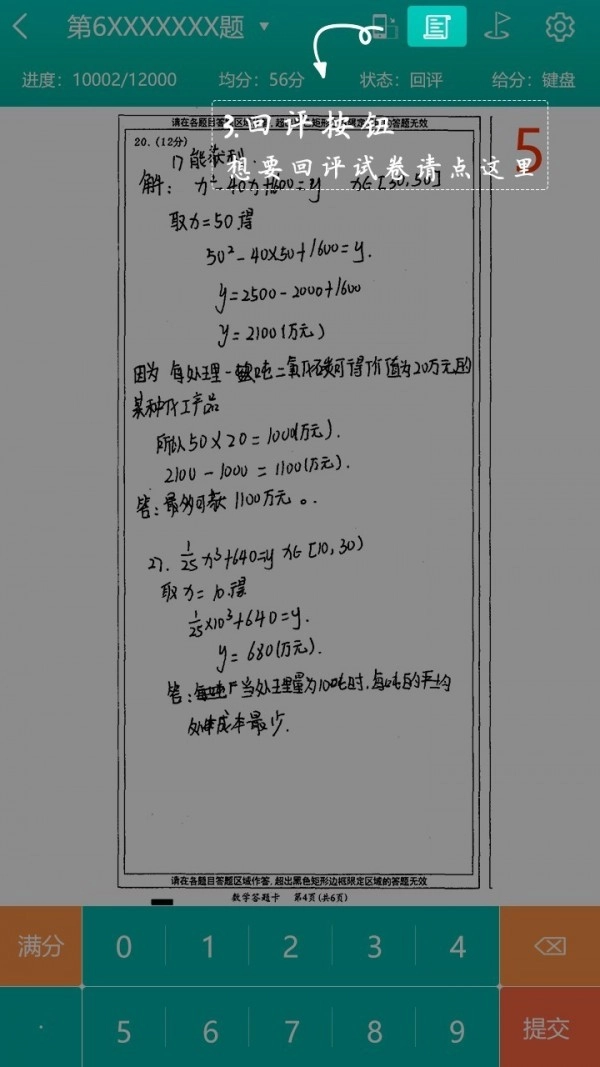 第6XXXXXXX题
进度：10002/12000 均分：56分 状态：回评 给分：键盘
请在各题目答题区域作答，超出黑色矩形边框限定区域的答题无效
3.回评按钮
想要回评试卷请点这里
5
20.（12分）
1) 能获利.
解： x²-40x+1600=y x∈[30,50]
取x=50.得
50²-40×50+1600=y.
y=2500-2000+1600
y=2100(万元)
因为 每处理一吨二氧化碳可得价值为20万元的
某种化工产品
所以50×20=1000(万元).
2100-1000=1100(万元).
答：最多可 1100万元。
2). 1/25 x³+640=y x∈[10,30)
取x=10.得
1/25×10³+640=y.
y=680(万元).
答： 当处理量为10吨时,每吨的平均
处理成本最少.
请在各题目答题区域作答，超出黑色矩形边框限定区域的答题无效
数学答题卡 第4页(共6页)
满分 0 1 2 3 4
· 5 6 7 8 9 提交